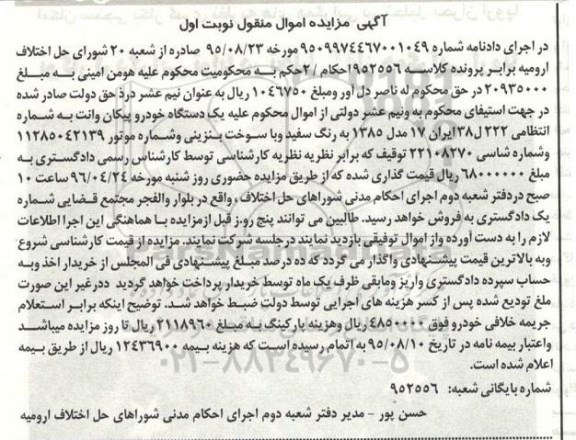 آگهی مزایده اموال منقول نوبت اول
در اجرای دادنامه شماره ۹۵۰۹۹۷۴۴۶۷۰۰۱۰۴۹ مورخه ۹۵/۰۸/۲۳ صادره از شعبه ۲۰ شورای حل اختلاف
ارومیه برابر پرونده کلاسه ۹۵۲۵۵۶ احکام /۲حکم به محکومیت محکوم علیه هومن امینی به مبلغ
۲۰۹۳۵۰۰۰ در حق محکوم له ناصر دل آور ومبلغ ۱۰۴۶۷۵۰ ریال به عنوان نیم عشر درحق دولت صادر شده
در جهت استیفای محکوم به ونیم عشر دولتی از اموال محکوم علیه یک دستگاه خودرو پیکان وانت به شماره
انتظامی ۲۲۲ ل۳۸ ایران ۱۷ مدل ۱۳۸۵ به رنگ سفید وبا سوخت بنزینی وشماره موتور ۱۱۲۸۵۰۴۲۱۳۹
وشماره شاسی ۲۲۱۰۸۲۷۰ توقیف که برابر نظریه نظریه کارشناسی توسط کارشناس رسمی دادگستری به
مبلغ ۶۸۰۰۰۰۰۰ ریال قیمت گذاری شده که از طریق مزایده حضوری روز شنبه مورخه ۹۶/۰۴/۲۴ ساعت ۱۰
صبح دردفتر شعبه دوم اجرای احکام مدنی شوراهای حل اختلاف ، واقع در بلوار والفجر مجتمع قضایی شماره
یک دادگستری به فروش خواهد رسید. طالبین می توانند پنج روز قبل ازمزایده با هماهنگی این اجرا اطلاعات
لازم را به دست آورده واز اموال توقیفی بازدید نمایند درجلسه شرکت نمایند. مزایده از قیمت کارشناسی شروع
وبه بالاترین قیمت پیشنهادی واگذار می گردد که ده درصد مبلغ پیشنهادی فی المجلس از خریدار اخذ وبه
حساب سپرده دادگستری واریز ومابقی ظرف یک ماه توسط خریدار پرداخت خواهد گردید ددرغیر این صورت
ملغ تودیع شده پس از کسر هزینه های اجرایی توسط دولت ضبط خواهد شد. توضیح اینکه برابر استعلام
جریمه خلافی خودرو فوق ۴۸۵۰۰۰۰ ریال وهزینه پارکینگ به مبلغ ۲۱۱۸۹۶۰ ریال تا روز مزایده میباشد
واعتبار بیمه نامه در تاریخ ۹۵/۰۸/۱۰ به اتمام رسیده است که هزینه بیمه ۱۲۴۳۶۹۰۰ ریال از طریق بیمه
اعلام شده است.
شماره بایگانی شعبه: ۹۵۲۵۵۶
حسن پور - مدیر دفتر شعبه دوم اجرای احکام مدنی شوراهای حل اختلاف ارومیه